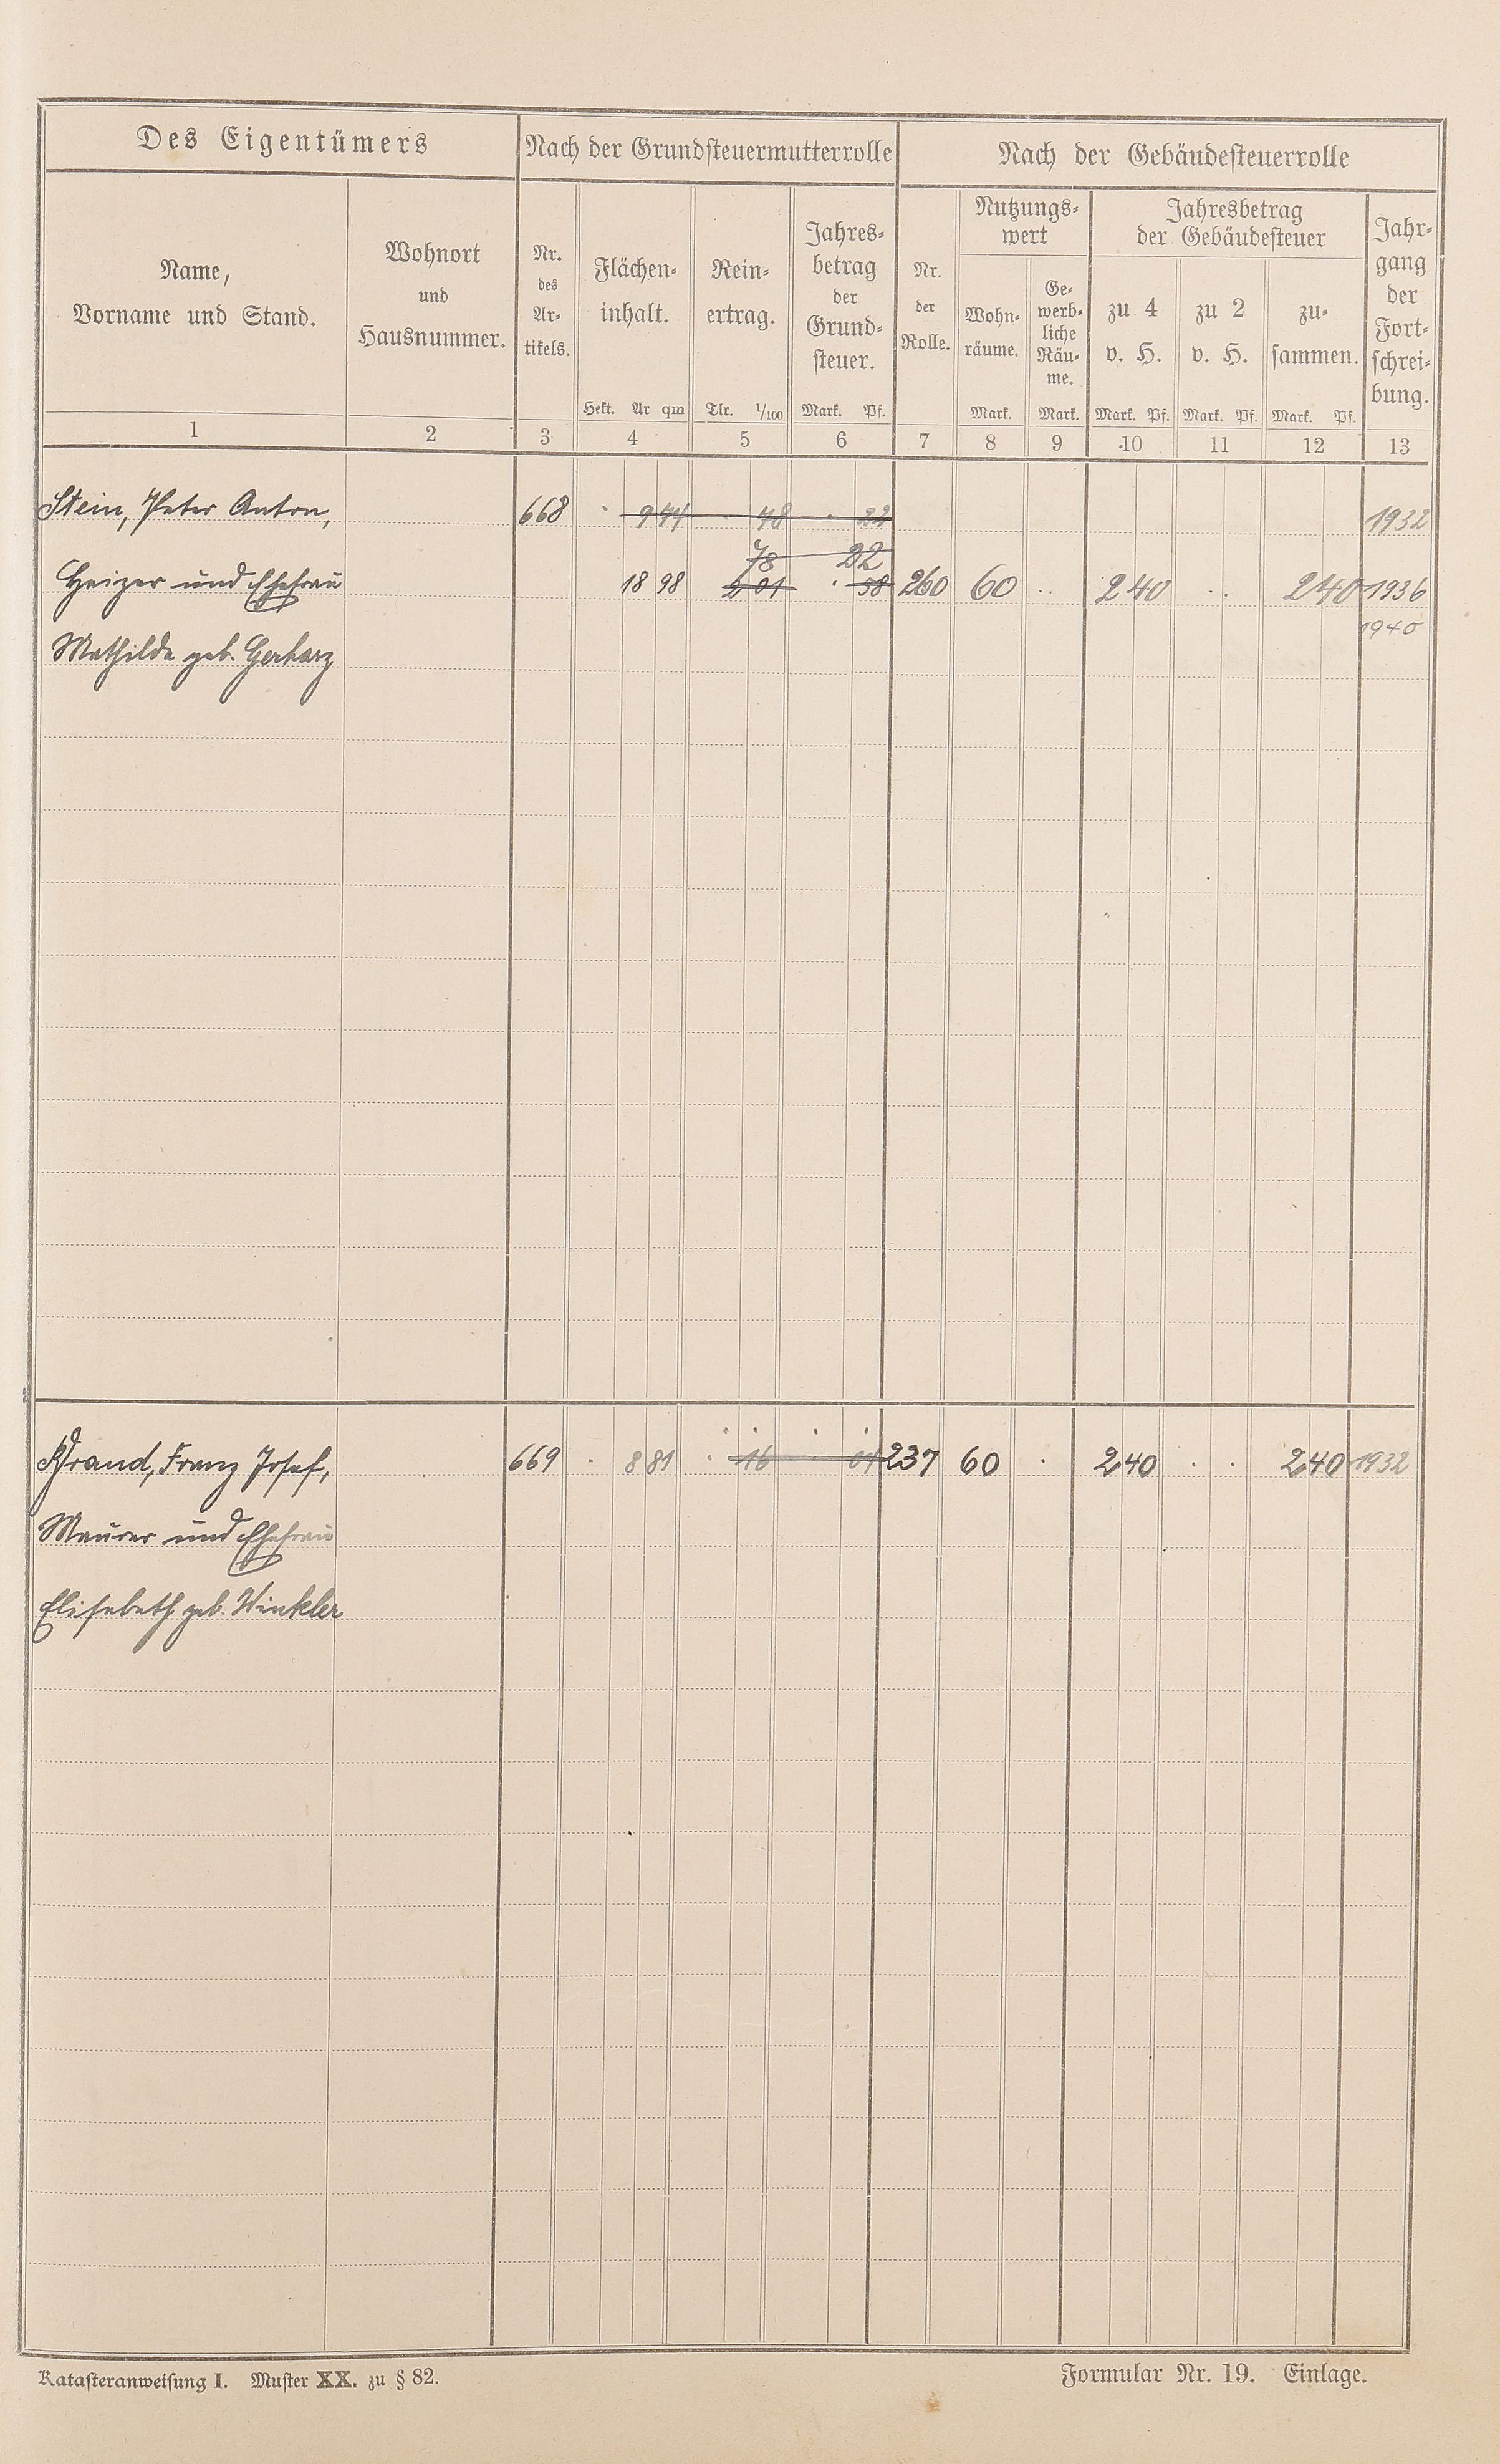 Des Eigentümers
Nach der Grundsteuermutterrolle
Nach der Gebäudesteuerrolle
Name,
Vorname und Stand.
Wohnort
und
Hausnummer.
Nr.
des
Ar-
tikels.
Flächen-
inhalt.
Hekt. Ar qm
Rein-
ertrag.
Tlr. 1/100
Jahres-
betrag
der
Grund-
steuer.
Mark. Pf.
Nr.
der
Rolle.
Nutzungs-
wert
Wohn-
räume.
Mark.
Ge-
werb-
liche
Räu-
me.
Mark.
Jahresbetrag
der Gebäudesteuer
zu 4
v. H.
Mark. Pf.
zu 2
v. H.
Mark. Pf.
zu-
sammen.
Mark. Pf.
Jahr-
gang
der
Fort-
schrei-
bung.
1 2 3 4 5 6 7 8 9 10 11 12 13
Stein, Peter Anton, 668 · 9 44 · 48 · 22 1932
78 22
Heizer und Ehefrau 18 98 2 01 · 58 260 60 · · 2 40 · · 2 40 1936
1940
Mathilde geb. Gerharz
Brand, Franz Josef, 669 · 8 81 · 16 · 04 237 60 · 2 40 · · 2 40 1932
Maurer und Ehefrau
Elisabeth geb. Winkler
Katasteranweisung I. Muster XX. zu § 82.
Formular Nr. 19. Einlage.